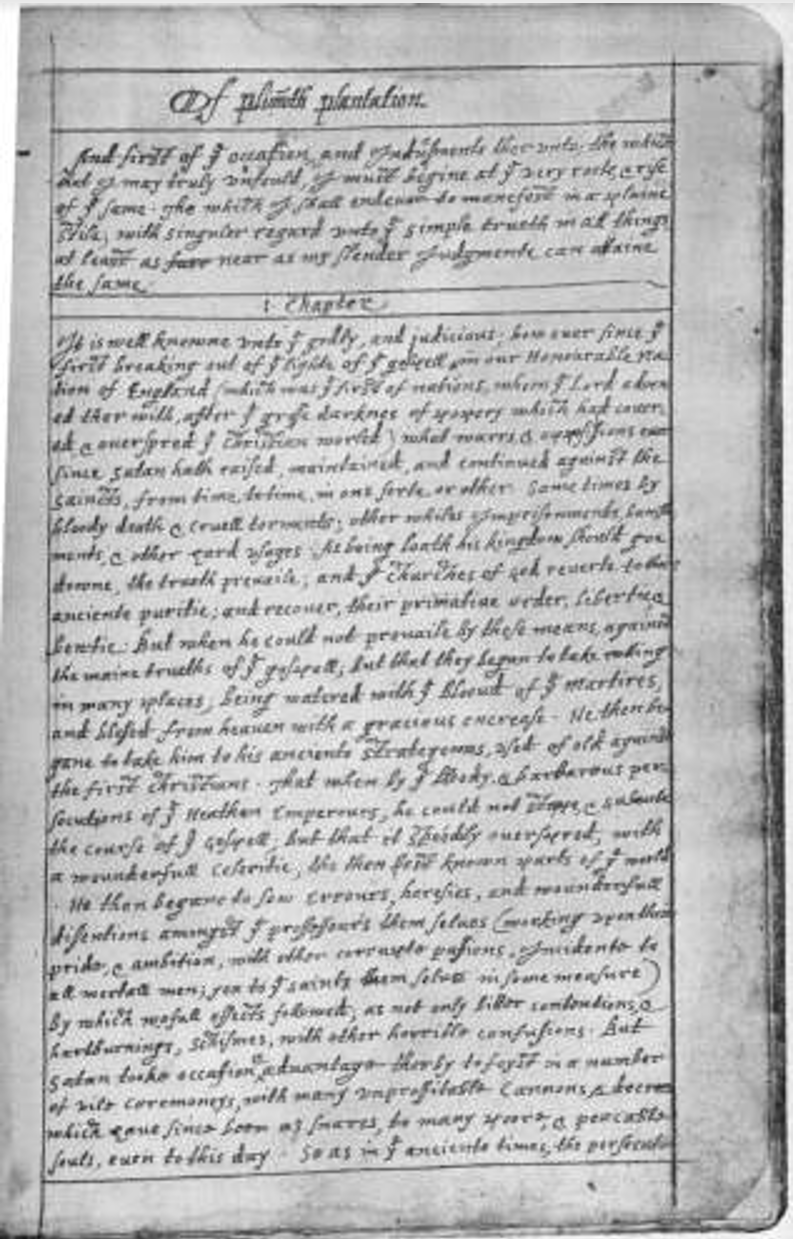 Of plim̃oth plantation.
And first of yᵉ occasion, and Indusments ther unto; the which
that I may truly unfould, I must begine at yᵉ very roote & rise
of yᵉ same. The which I shall endevor to manefest in a plaine
stile; with singuler regard unto yᵉ simple trueth in all things,
at least as farr near as my slender Judgmente can attaine
the same.
1 Chapter
It is well knowne unto yᵉ godly, and judicious; how ever since yᵉ
first breaking out of yᵉ lighte of yᵉ gospell, in our Honourable na
tion of England (which was yᵉ first of nations, whom yᵉ Lord adorn
ed ther with, after yᵉ grose darknes of popery which had cover
ed & overspred yᵉ christian world) what warrs, & oppossions ever
since satan hath raised, maintained, and continued against the
saincts, from time, to time, in one sorte, or other. Some times by
bloody death & cruell torments; other whiles Imprisonments, banish
ments, & other hard usages. As being loath his kingdom should goe
downe, the trueth prevaile; and yᵉ Churches of God reverte to their
anciente puritie; and recover, their primative order, libertie, &
bewtie. But when he could not prevaile by these means, against
the maine trueths of yᵉ gospell; but that they began to take rooting
in many places; being watered with yᵉ bloud of yᵉ martires,
and blesed from heaven with a gracious encrease. He then be
gane to take him to his anciente strategemes, used of old against
the first christians. That when by yᵉ bloody, & barbarous per
secutions of yᵉ Heathen Emperours, he could not stoppe, & subverte
the course of yᵉ Gospell; but that it speedily overspred, with
a wounderfull Celeritie, the then best known parts of yᵉ world
. He then begane to sow Errours, heresies, and wounderfull
disentions amongst yᵉ professours them selves (working upon their
pride, & ambition, with other corrupte passions, Incidente to
all mortall men; yea to yᵉ saints them selves in some measure)
By which wofull effects followed; as not only bitter contentions, &
hartburnings, schismes, with other horrible confusions. But
Satan tooke occasion & advantage therby to foyst in a number
of vile ceremoneys, with many unproffitable Cannons, & decrees
which have since been as snares, to many poore, & peaceable
souls, even to this day. So as in yᵉ anciente times, the persecutio